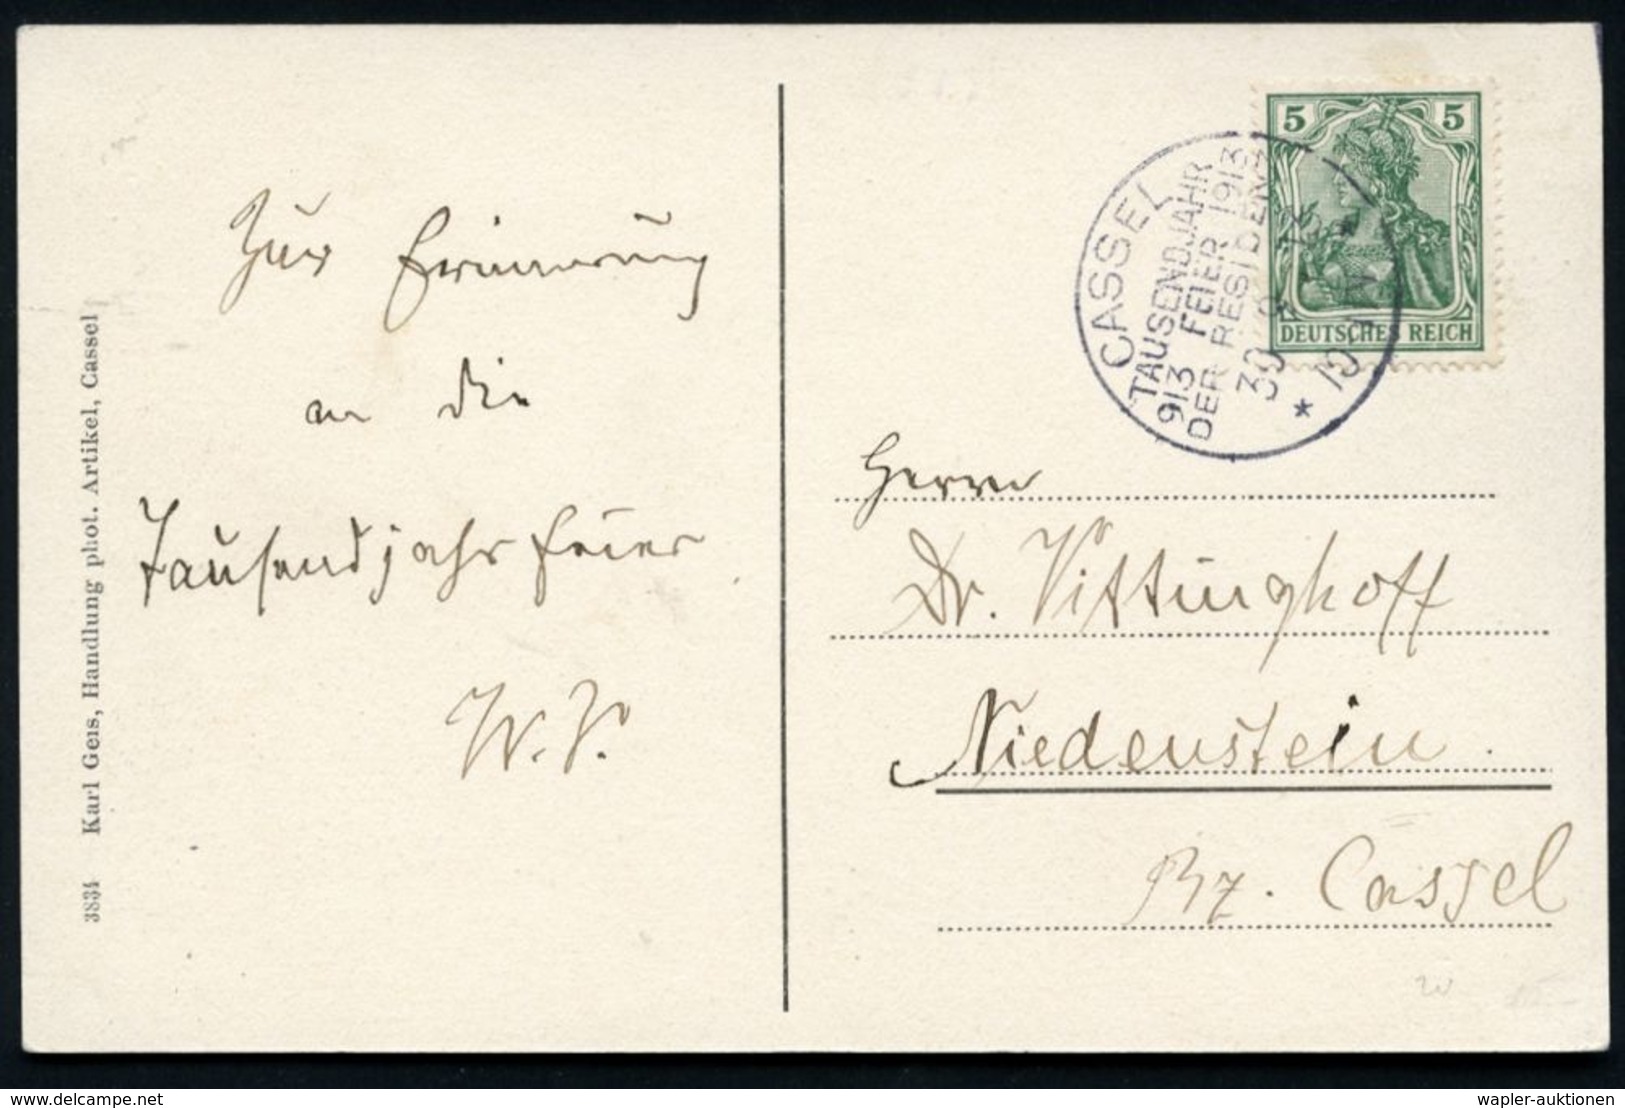 Zur Erinnerung
an die
Tausendjahrfeier
W. V.
3834 Karl Geis, Handlung phot. Artikel, Cassel
5 5
DEUTSCHES REICH
CASSEL
TAUSENDJAHR
913 FEIER 1913
DER RESIDENZ
30
Herrn
Dr. Vittinghoff
Niedenstein.
Bz. Cassel
www.delcampe.net
wapler-auktionen